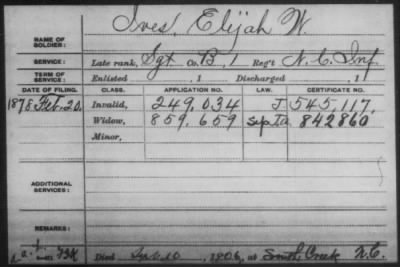 Ives, Elijah W.
NAME OF SOLDIER:
SERVICE: Late rank, Sgt Co. B, 1 Reg't N.C. Inf.
TERM OF SERVICE: Enlisted , 1 Discharged , 1
DATE OF FILING. CLASS. APPLICATION NO. LAW. CERTIFICATE NO.
1878 Feb. 20. Invalid, 249.034 J 545,117,
Widow, 859.659 842860
Minor,
ADDITIONAL SERVICES:
REMARKS:
Died 10, 1906, at South Creek N.C.